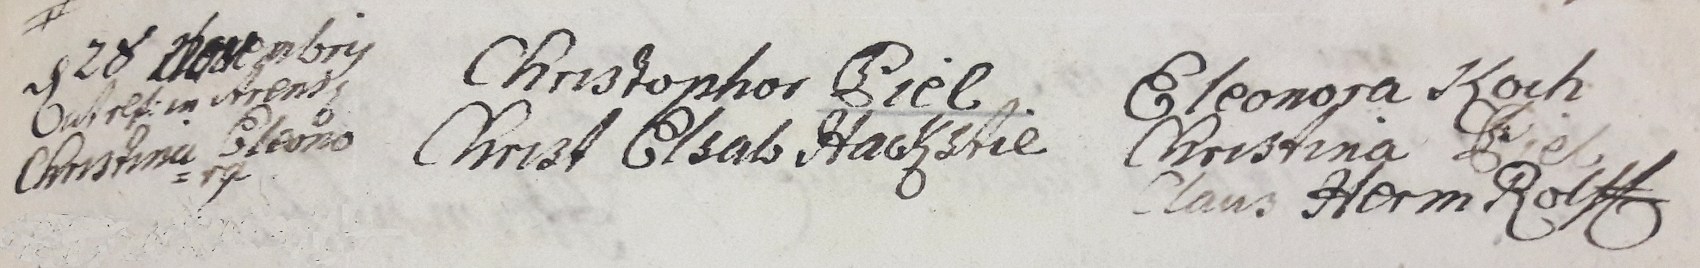 d 28 Novembris
in Arens
Christina Eleono
=ra
Christophor Piel
Christ Elsab Hackstie
Eleonora Koch
Christina Piel
Claus Herm Rolff